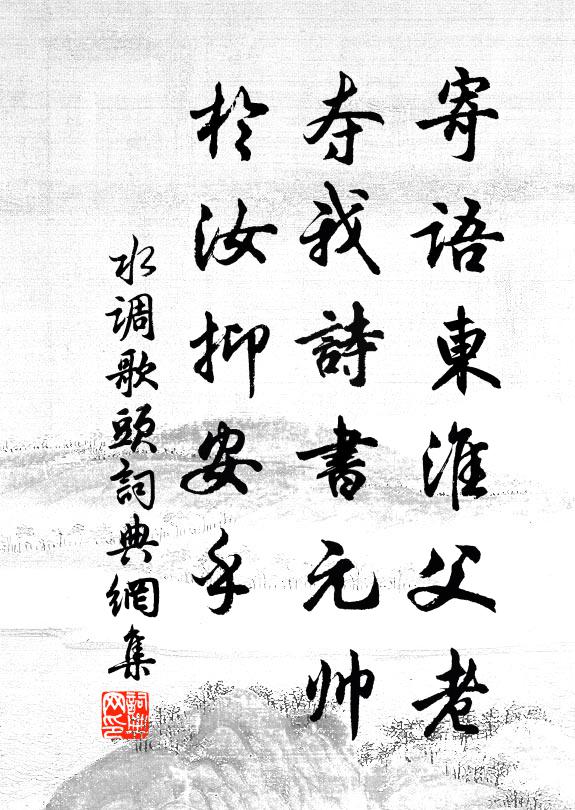 寄語東淮父老
奪我詩書元帥
於汝抑安乎
水调歌頭詞典網集
詞典网印